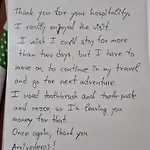 Thank you for your hospitality,
I really enjoyed the visit.
I wish I could stay for more
than two days, but I have to
move on, to continue in my travel
and go for next adventure.
I used toothbrush and tooth-paste
and razor, so I'm leaving you
money for that.
Once again, thank you
Arrivederci!